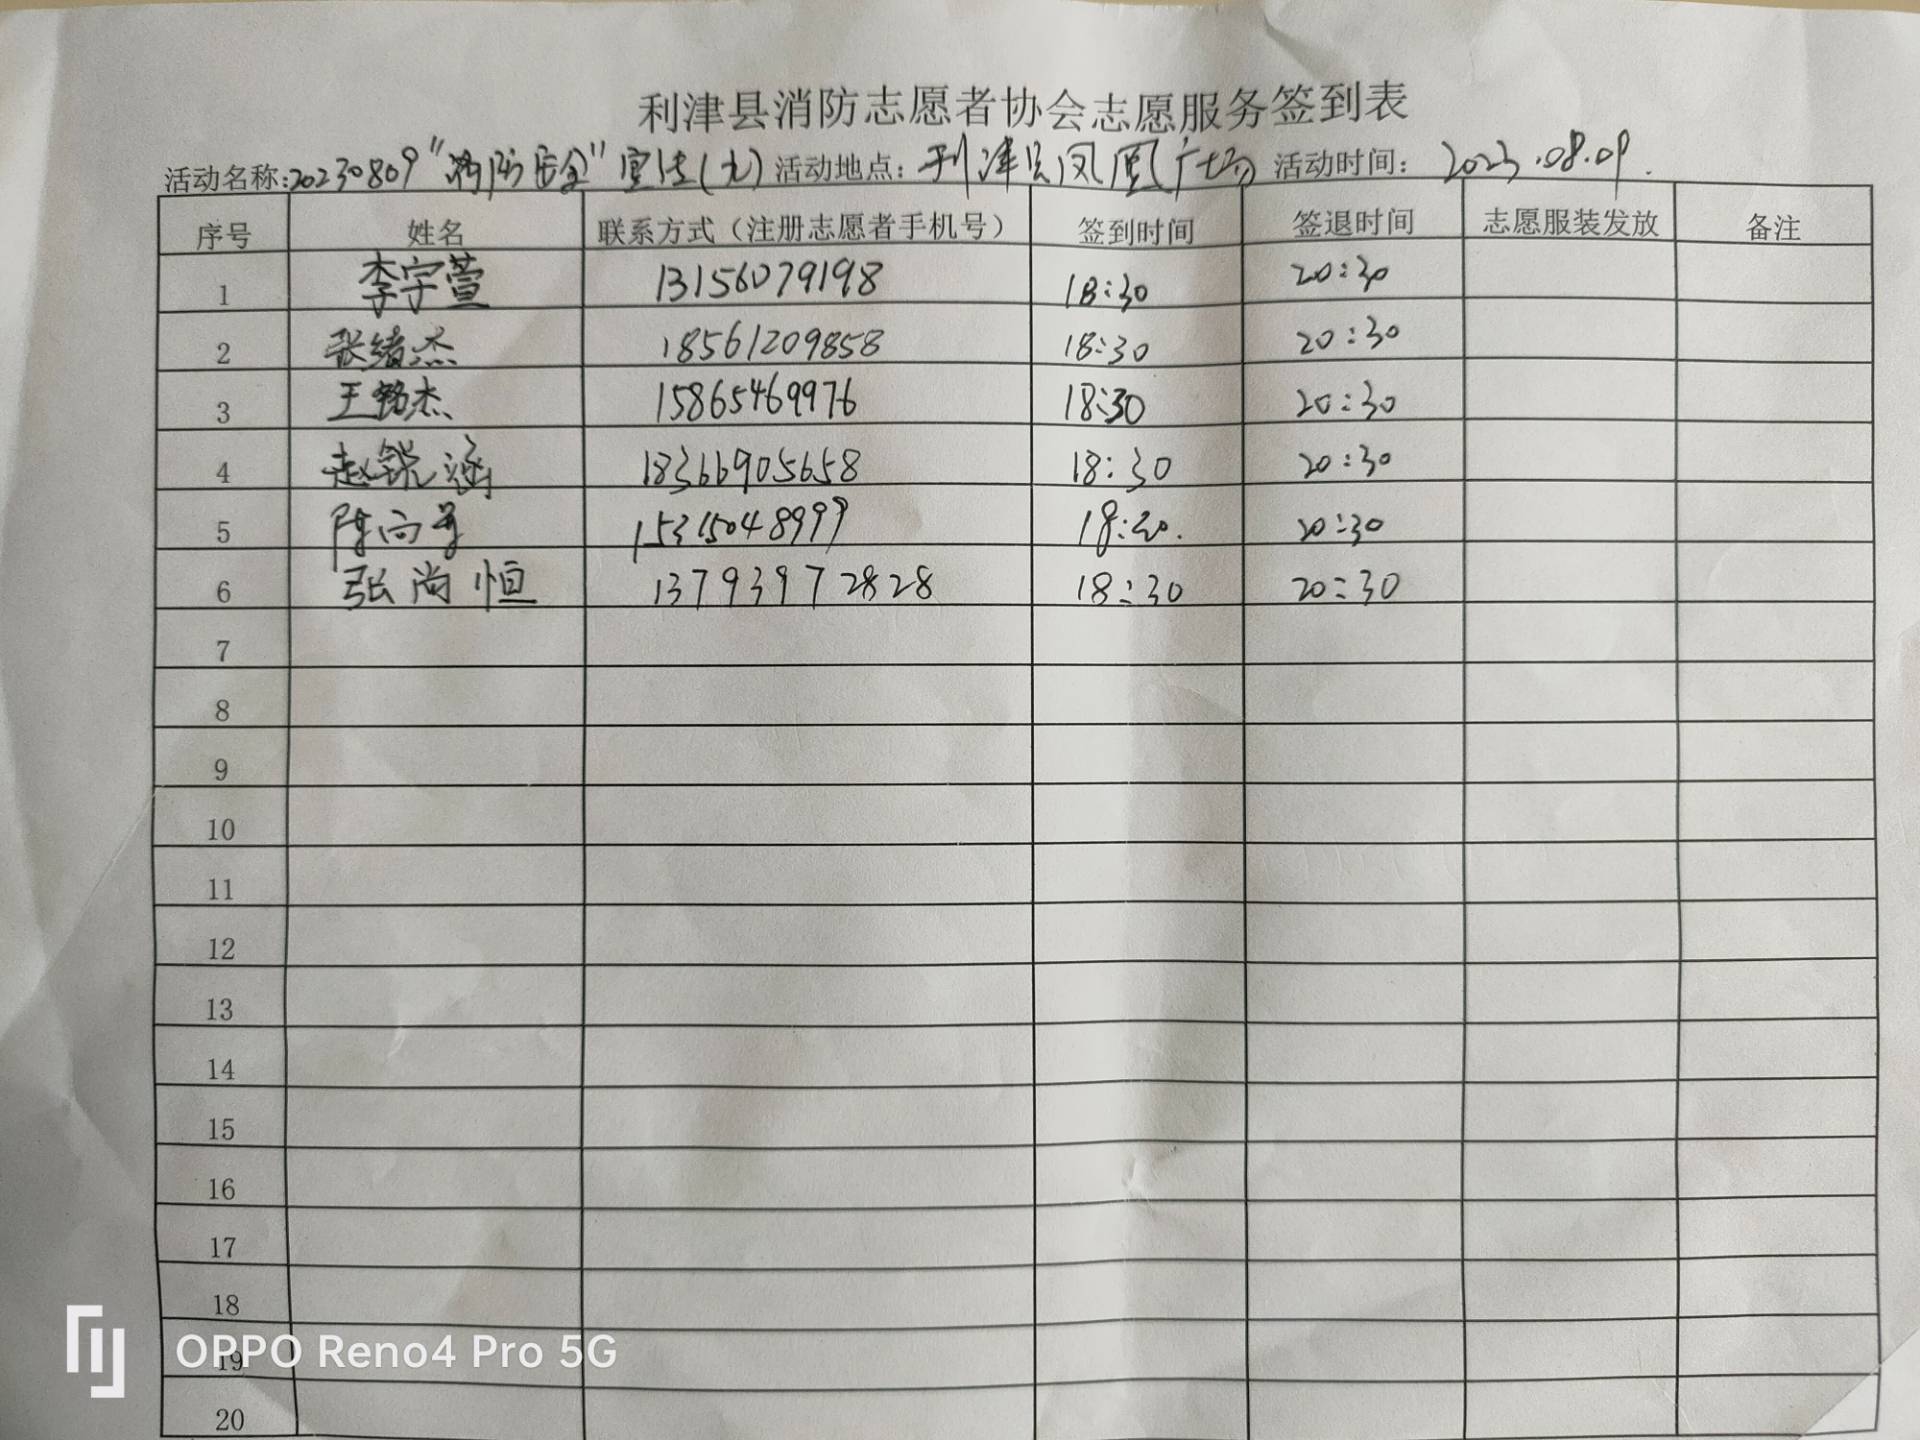 利津县消防志愿者协会志愿服务签到表
活动名称:20230809"消防安全"宣传(九) 活动地点:利津县凤凰广场 活动时间: 2023.08.09.
序号 姓名 联系方式（注册志愿者手机号） 签到时间 签退时间 志愿服装发放 备注
1 李宇萱 13156079198 18:30 20:30
2 张绪杰 18561209858 18:30 20:30
3 王铭杰 15865469976 18:30 20:30
4 赵锐涵 18366905658 18:30 20:30
5 陈向 15315048999 20:30
6 张尚恒 13793972828 18:30 20:30
7
8
9
10
11
12
13
14
15
16
17
18
19
OPPO Reno4 Pro 5G
20